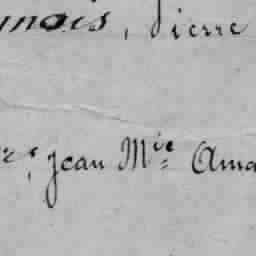 unois, Pierre
rs, Jean Mie Ama